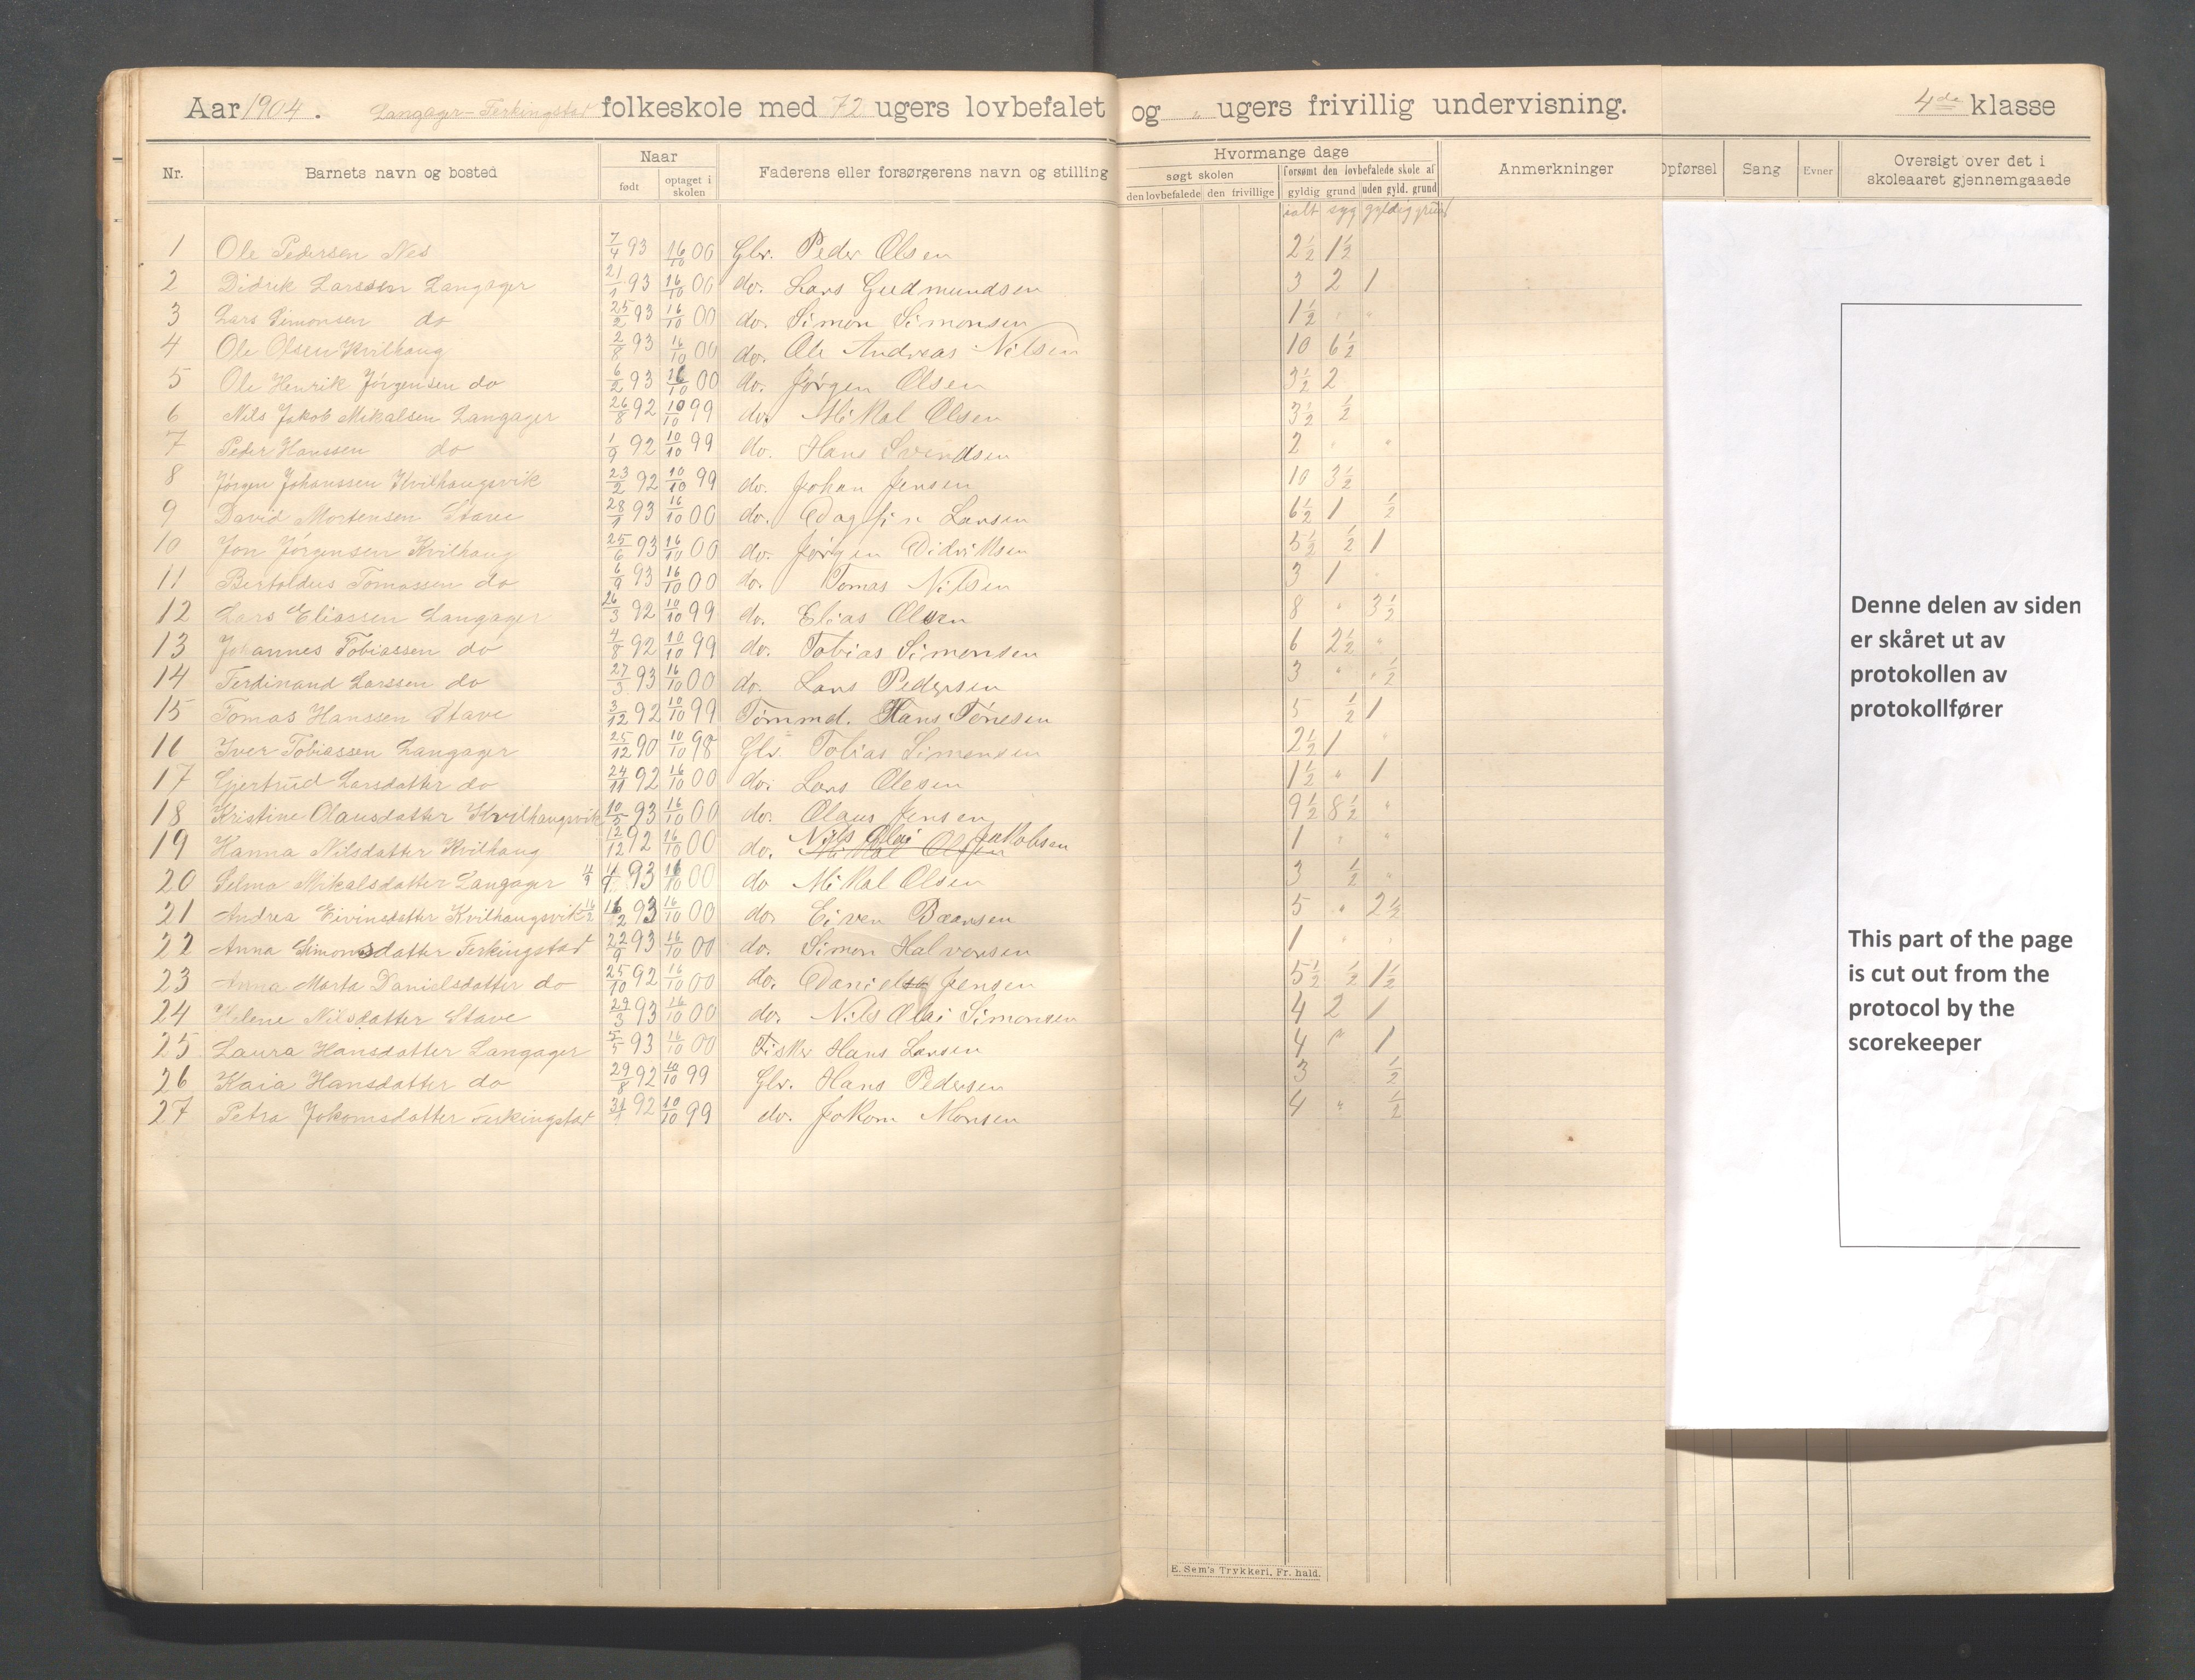 Aar 1904. Langager-Ferkingstad folkeskole med 72 ugers lovbefalet og " ugers frivillig undervisning. 4de klasse
Nr. Barnets navn og bosted Naar født optaget i skolen Faderens eller forsørgerens navn og stilling Hvormange dage søgt skolen den lovbefalede den frivillige forsømt den lovbefalede skole af gyldig grund uden gyld. grund Anmerkninger Opførsel Sang Evner Oversigt over det i skoleaaret gjennemgaaede
ialt syg gyldig grund
1 Ole Pedersen Nes 7/4 93 16/10 00 Gbr. Peder Olsen 2 1/2 1 1/2
2 Didrik Larssen Langager 21/1 93 16/10 00 do. Lars Gudmundsen 3 2 1
3 Lars Simonsen do 25/2 93 16/10 00 do. Simon Simonsen 1 1/2 " "
4 Ole Olsen Kvilhaug 2/8 93 16/10 00 do. Ole Andreas Nilsen 10 6 1/2
5 Ole Henrik Jørgensen do 6/2 93 16/10 00 do. Jørgen Olsen 3 1/2 2
6 Nils Jakob Mikalsen Langager 26/8 92 10/10 99 do. Mikal Olsen 3 1/2 1/2
7 Peder Hanssen do 1/9 92 10/10 99 do. Hans Svendsen 2 " "
8 Jørgen Johanssen Kvilhaugsvik 23/2 92 10/10 99 do. Johan Jensen 10 3 1/2
9 David Mortensen Stave 28/1 93 16/10 00 do. Dagfin Larsen 6 1/2 1 1/2
10 Jon Jørgensen Kvilhaug 25/6 93 16/10 00 do. Jørgen Didriksen 5 1/2 1/2 1
11 Bertoldus Tomassen do 6/9 93 16/10 00 do. Tomas Nilsen 3 1 "
12 Lars Eliassen Langager 26/3 92 10/10 99 do. Elias Olsen 8 " 3 1/2
13 Johannes Tobiassen do 4/8 92 10/10 99 do. Tobias Simonsen 6 2 1/2 "
14 Ferdinand Larssen do 27/3 93 16/10 00 do. Lars Pedersen 3 " 1/2
15 Tomas Hanssen Stave 3/12 92 10/10 99 Tømmd. Hans Tønesen 5 1/2 1
16 Iver Tobiassen Langager 25/12 90 10/10 98 Gbr. Tobias Simonsen 2 1/2 1 "
17 Gjertrud Larsdatter do 24/11 92 16/10 00 do. Lars Olesen 1 1/2 " 1
18 Kristine Olausdatter Kvilhaugsvik 10/5 93 16/10 00 do. Olaus Jensen 9 1/2 8 1/2 "
19 Hanna Nilsdatter Kvilhaug 12/12 92 16/10 00 do. Nils Olai Jakobsen Mikal Olsen 1 " "
20 Selma Mikalsdatter Langager 4/9 4/9 93 16/10 00 do Mikal Olsen 3 1/2 "
21 Andrea Eivinsdatter Kvilhaugsvik 16/2 16/2 93 16/10 00 do. Eiven Bærsen 5 " 2 1/2
22 Anna Simonsdatter Ferkingstad 22/9 93 16/10 00 do. Simon Halvorsen 1 " "
23 Anna Marta Danielsdatter do 25/10 92 16/10 00 do. Daniel Jensen 5 1/2 1/2 1 1/2
24 Helene Nilsdatter Stave 29/3 93 16/10 00 do. Nils Olai Simonsen 4 2 1
25 Laura Hansdatter Langager 5/5 93 16/10 00 Fisker Hans Larsen 4 " 1
26 Kaia Hansdatter do 29/8 92 10/10 99 Gbr. Hans Pedersen 3 1/2
27 Petra Jokomsdatter Ferkingstad 31/1 92 10/10 99 do. Jokom Monsen 4 " 1/2
E. Sem's Trykkeri, Fr. hald.
Denne delen av siden
er skåret ut av
protokollen av
protokollfører
This part of the page
is cut out from the
protocol by the
scorekeeper